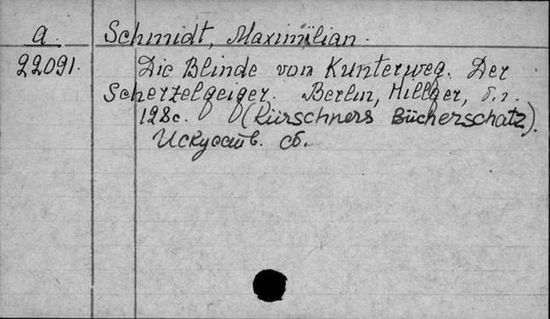 a. Schmidt, Maximilian.
22091. Die Blinde von Kunterweg. Der
Scherzelgeiger. Berlin, Hillger, б.г.
128c. (Kürschners Bücherschatz).
Искусств. сб.